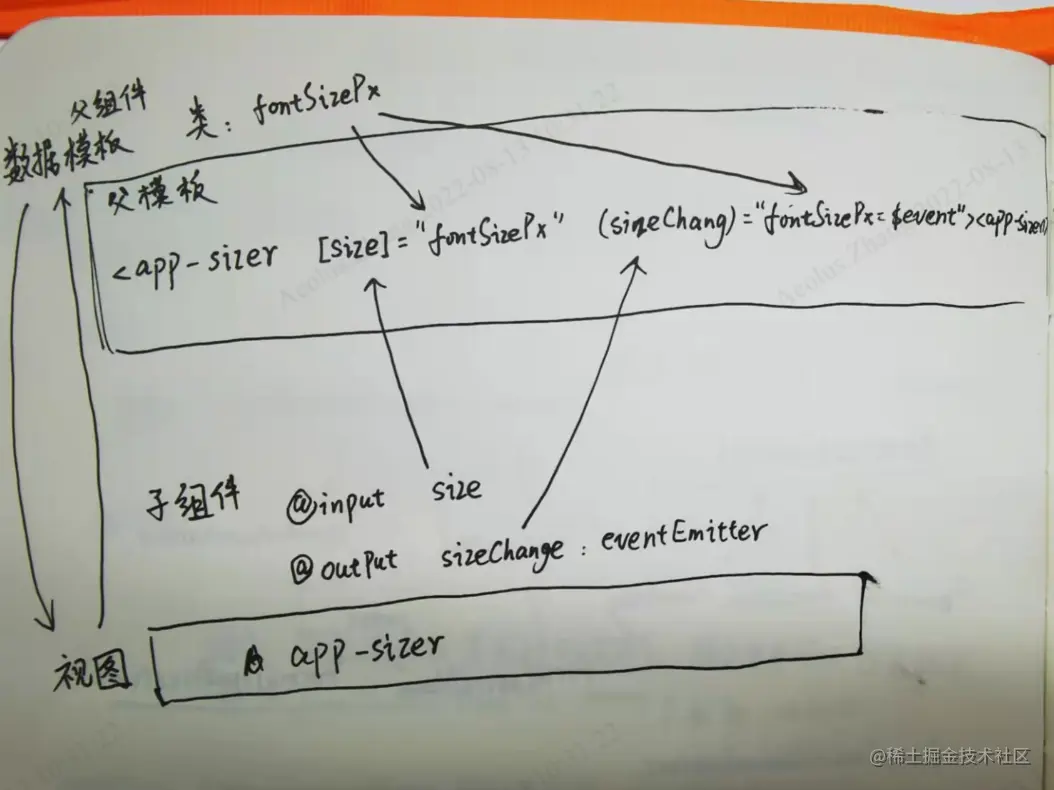 父组件
类: fontSizePx
数据模板
父模板
<app-sizer [size]="fontSizePx" (sizeChang)="fontSizePx=$event"><app-sizer>
子组件 @input size
@outPut sizeChange : eventEmitter
视图
app-sizer
@稀土掘金技术社区